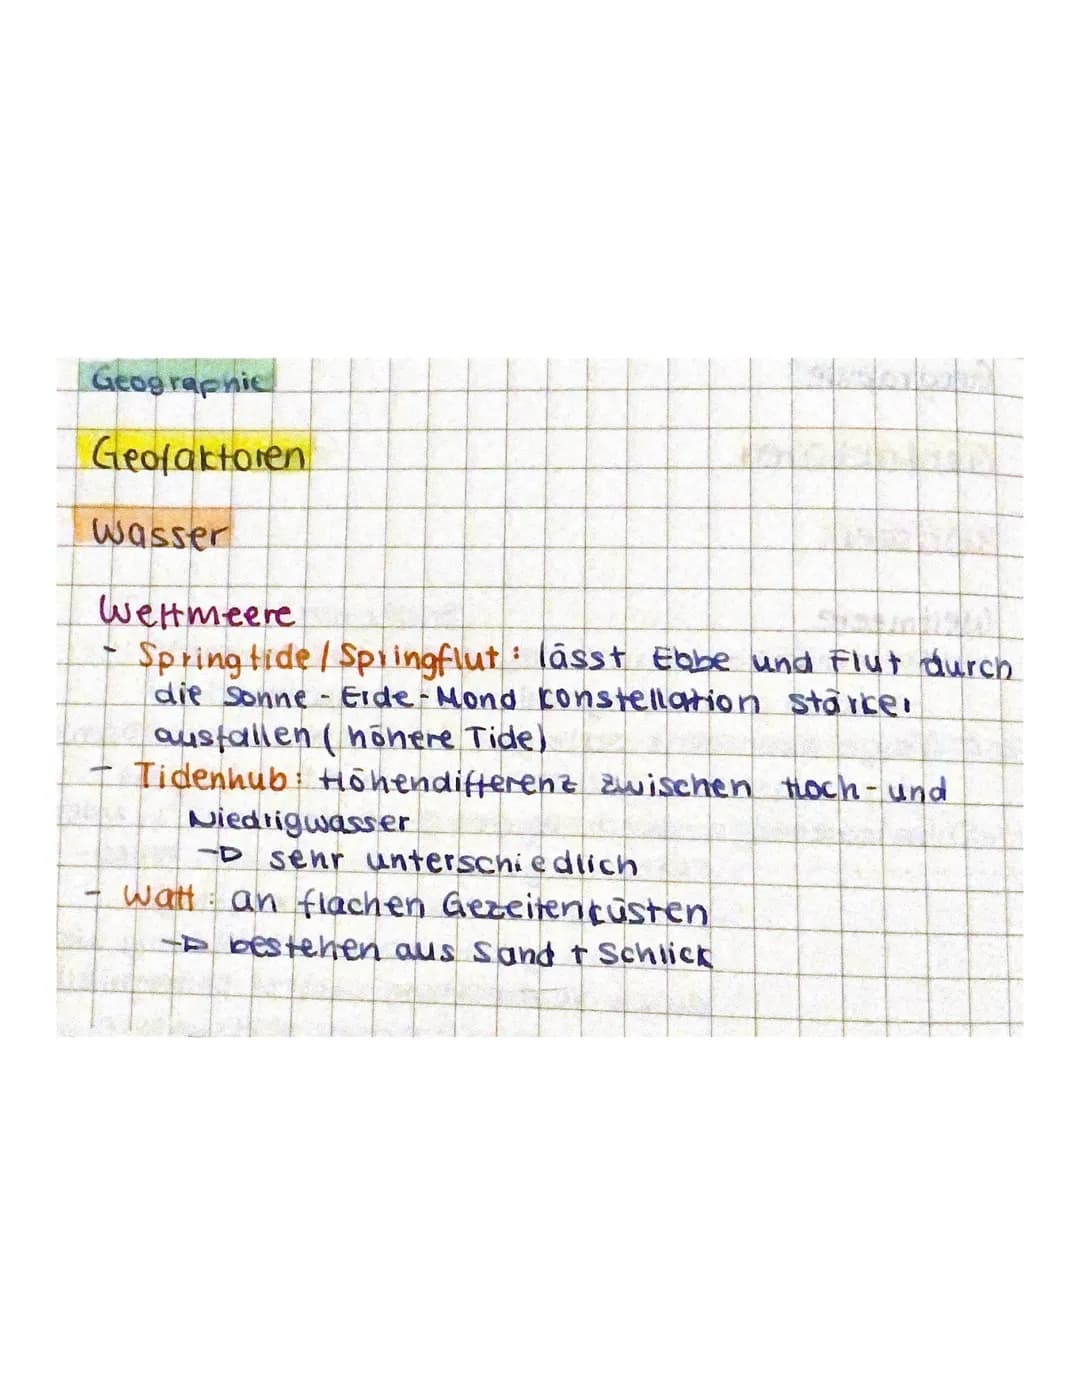 Geographie
Geofaktoren
Wasser
Weltmeere
- Springtide / Springflut : lässt Ebbe und Flut durch
die Sonne - Erde - Mond Konstellation stärker
ausfallen ( höhere Tide)
- Tidenhub : Höhendifferenz zwischen Hoch- und
Niedrigwasser
→ sehr unterschiedlich
- Watt : an flachen Gezeitenküsten
→ bestehen aus Sand + Schlick